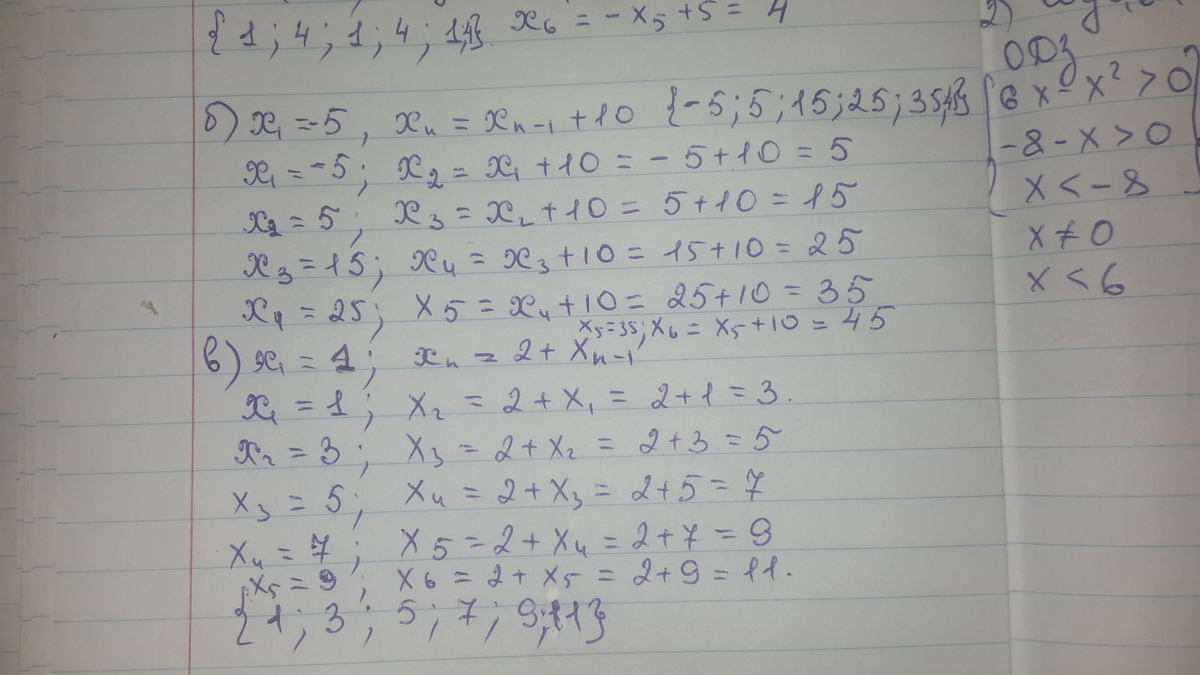 {1; 4; 1; 4; 1;4}. x₆ = -x₅ + 5 = 4
б) x₁ = -5, xₙ = xₙ₋₁ + 10 {-5; 5; 15; 25; 35;45}
x₁ = -5; x₂ = x₁ + 10 = -5 + 10 = 5
x₂ = 5; x₃ = x₂ + 10 = 5 + 10 = 15
x₃ = 15; x₄ = x₃ + 10 = 15 + 10 = 25
x₄ = 25; x₅ = x₄ + 10 = 25 + 10 = 35
x₅ = 35; x₆ = x₅ + 10 = 45
в) x₁ = 1; xₙ = 2 + xₙ₋₁
x₁ = 1; x₂ = 2 + x₁ = 2 + 1 = 3.
x₂ = 3; x₃ = 2 + x₂ = 2 + 3 = 5
x₃ = 5; x₄ = 2 + x₃ = 2 + 5 = 7
x₄ = 7; x₅ = 2 + x₄ = 2 + 7 = 9
x₅ = 9; x₆ = 2 + x₅ = 2 + 9 = 11.
{1; 3; 5; 7; 9;11}
2)
ОДЗ
6x - x² > 0
-8 - x > 0
x < -8
x ≠ 0
x < 6